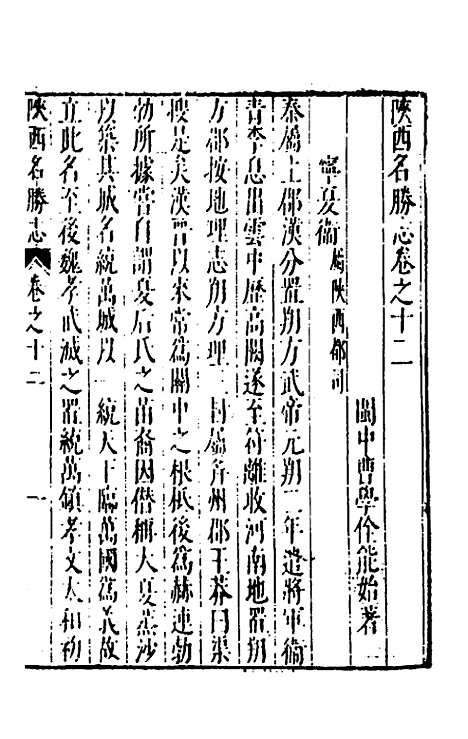 陝西名勝志卷之十二
閩中曹學佺能始著
寧夏衛 屬陝西都司
秦屬上郡漢分置朔方武帝元朔二年遣將軍衛
青李息出雲中歷高闕遂至符離收河南地置朔
方郡按地理志朔方理三封屬并州郡王莽曰渠
搜是矣漢晉以來常為關中之根柢後為赫連勃
勃所據嘗自謂夏后氏之苗裔因僭稱大夏蒸沙
以築其城名統萬城以一統天下臨萬國為義故
立此名至後魏孝武滅之置統萬鎮孝文太和初
陝西名勝志 卷之十二 一